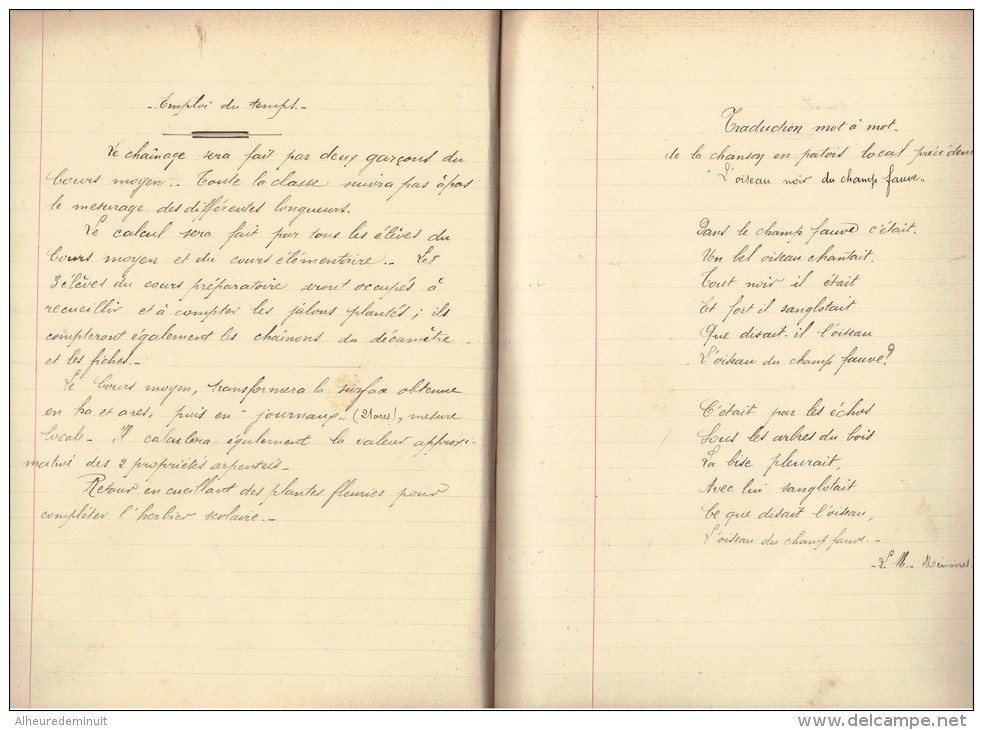 - Emploi du temps. -
Le chaînage sera fait par deux garçons du
Cours moyen. - Toute la classe suivra pas à pas
le mesurage des différentes longueurs.
Le calcul sera fait par tous les élèves du
Cours moyen et du cours élémentaire. - Les
3 élèves du cours préparatoire seront occupés à
recueillir et à compter les jalons plantés ; ils
compteront également les chaînons du décamètre
et les fiches. -
Le Cours moyen, transformera la surface obtenue
en ha et ares, puis en "journaux" (21 ares), mesure
locale - Il calculera également la valeur approxi-
mative des 2 propriétés arpentées -
Retour en cueillant des plantes fleuries pour
compléter l'herbier scolaire. -
Traduction mot à mot.
de la chanson en patois local précédent
"L'oiseau noir du champ fauve"
Dans le champ fauve c'était.
Un bel oiseau chantait.
Tout noir il était
Et fort il sanglotait
Que disait-il l'oiseau
L'oiseau du champ fauve ?
C'était par les échos
Sous les arbres du bois
La bise pleurait,
Avec lui sanglotait
Ce que disait l'oiseau,
L'oiseau du champ fauve. -
Alheuredeminuit
www.delcampe.net